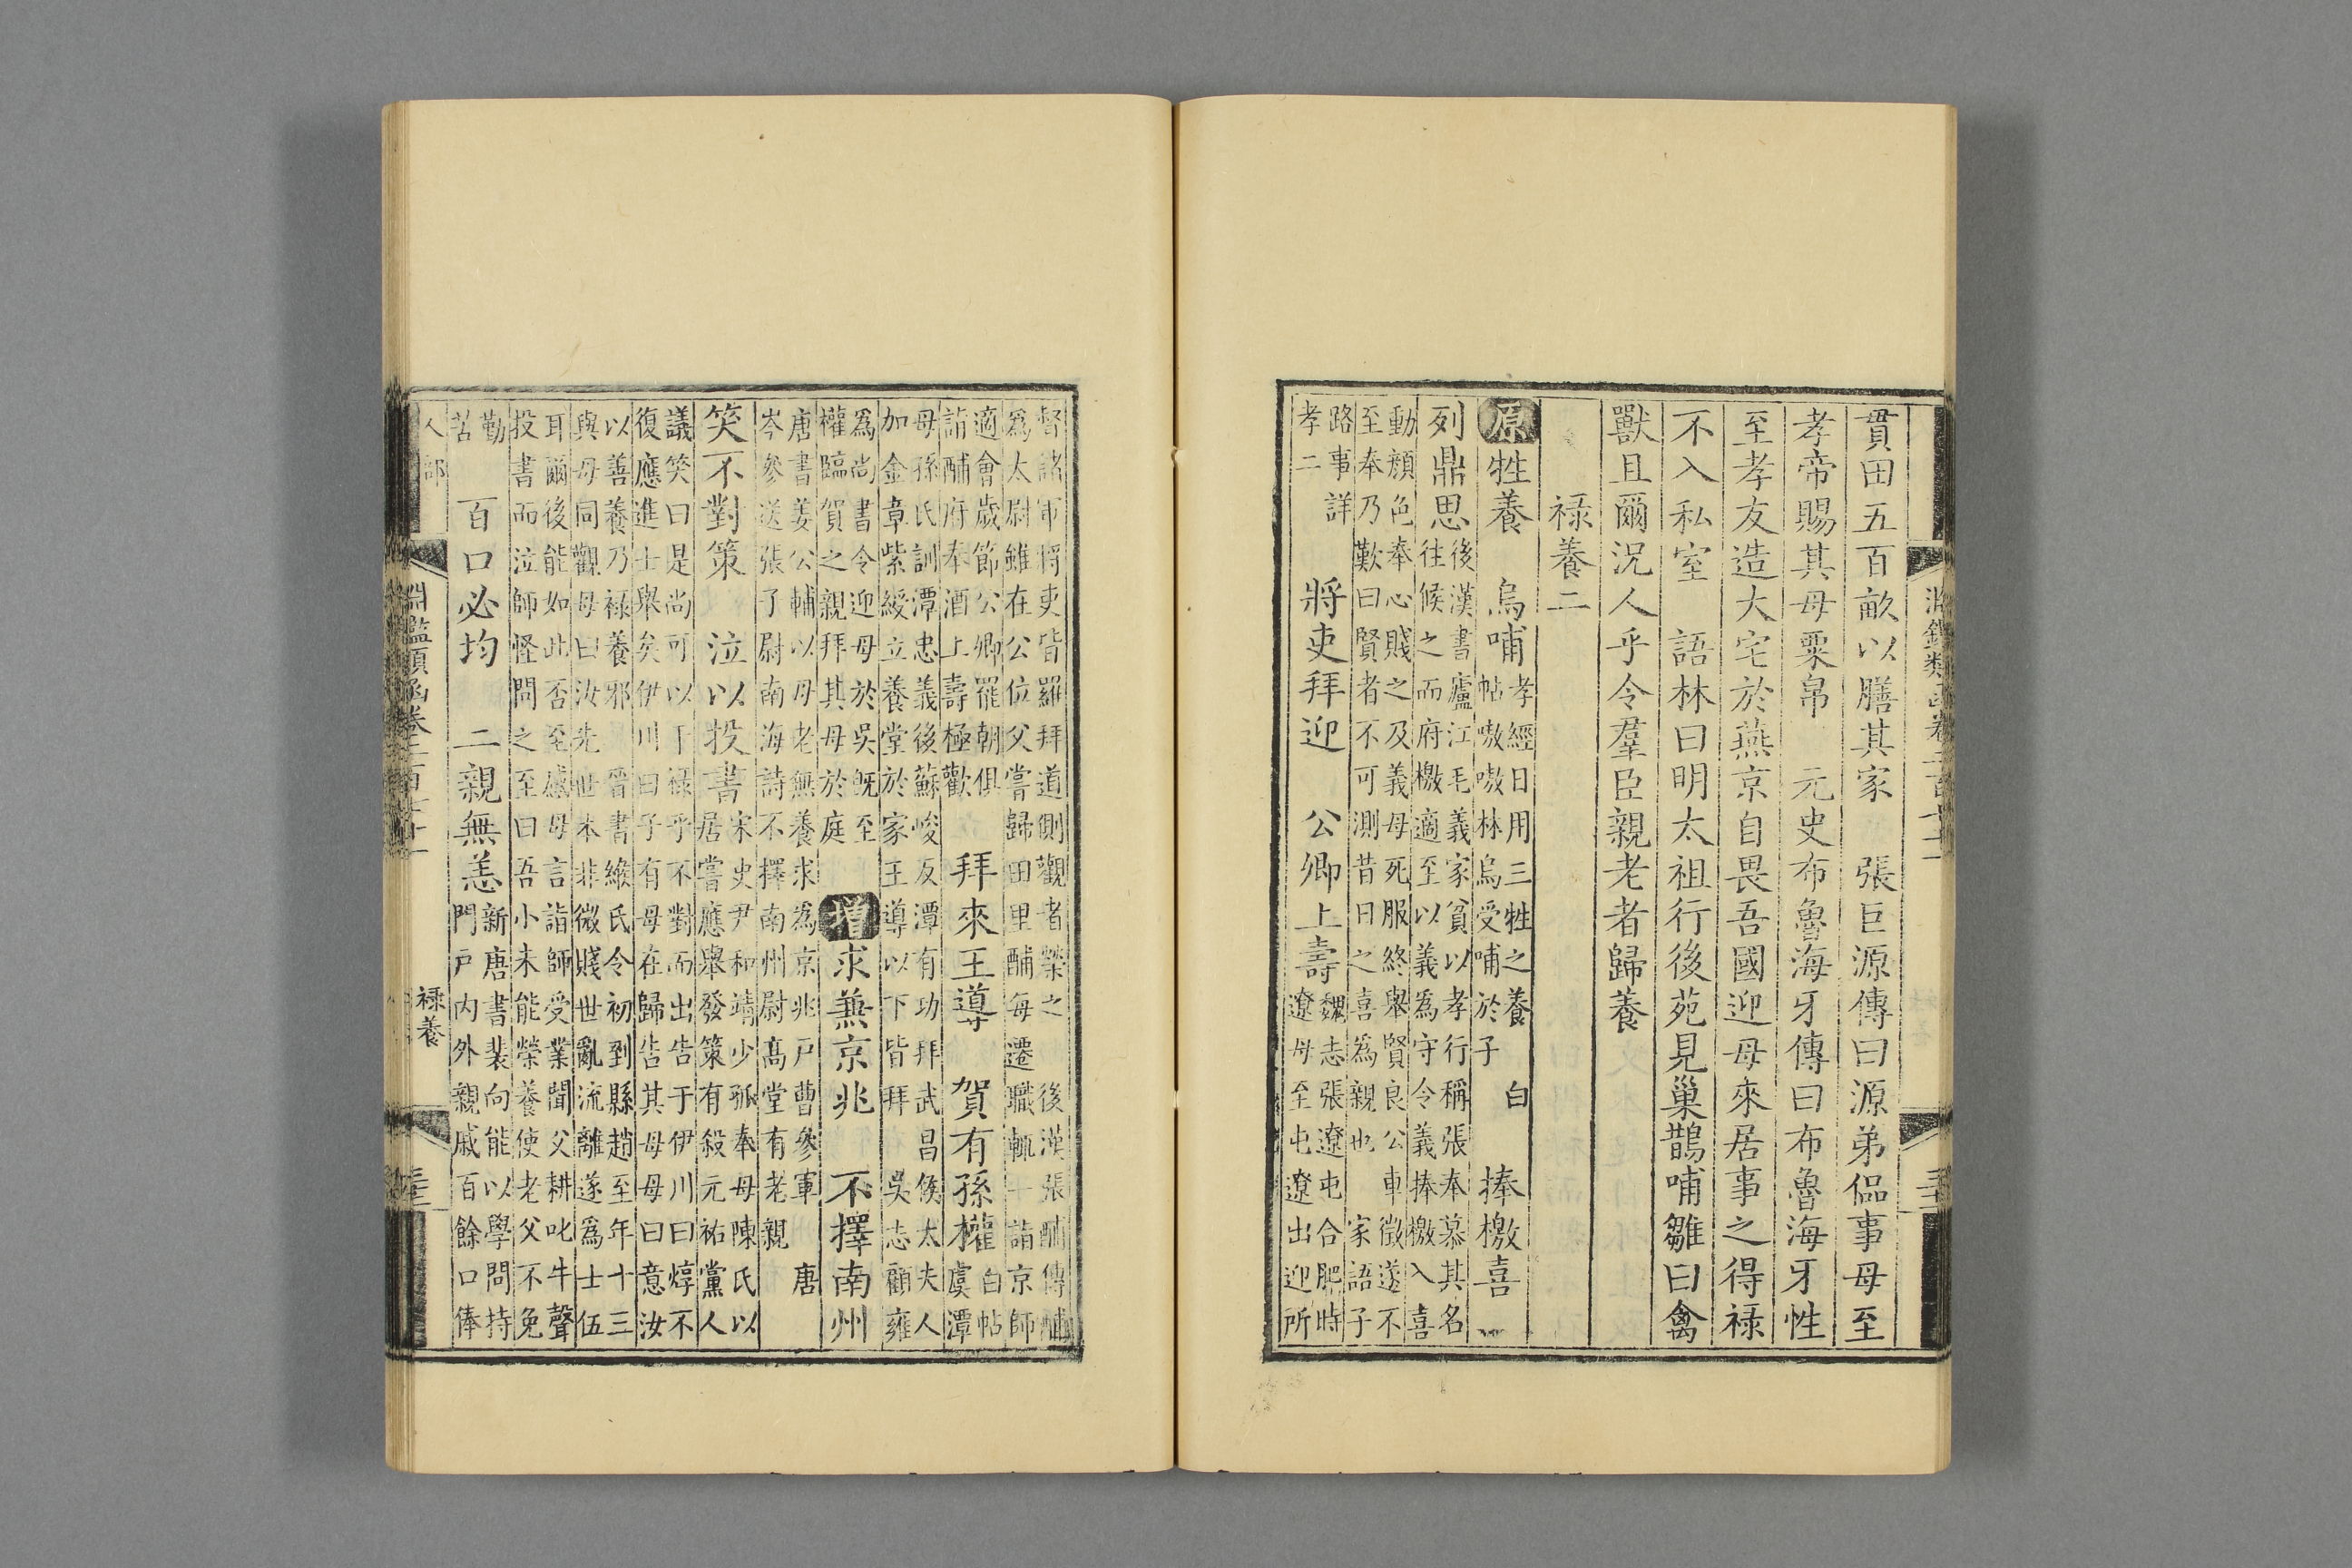 貫田五百畝以膳其家　張巨源傳曰源弟侃事母至
孝帝賜其母粟帛　元史布魯海牙傳曰布魯海牙性
至孝友造大宅於燕京自畏吾國迎母來居事之得祿
不入私室　語林曰明太祖行後苑見巢鵲哺雛曰禽
獸且爾況人乎令羣臣親老者歸養
祿養二
原牲養　烏哺孝經日用三牲之養　白帖嗷嗷林烏受哺於子　捧檄喜
列鼎思後漢書廬江毛義家貧以孝行稱張奉慕其名往候之而府檄適至以義為守令義捧檄入喜
動顏色奉心賤之及義母死服終舉賢良公車徵遂不至奉乃歎曰賢者不可測昔日之喜為親也　家語子
路事詳孝二　將吏拜迎　公卿上壽魏志張遼屯合肥時遼母至屯遼出迎所
督諸軍將吏皆羅拜道側觀者榮之　後漢張酺傳酺為太尉雖在公位父嘗歸田里酺每遷職輒一詣京師
適會歲節公卿罷朝俱詣酺府奉酒上壽極歡　拜來王導　賀有孫權白帖虞潭
母孫氏訓潭忠義後蘇峻反潭有功拜武昌侯太夫人加金章紫綬立養堂於家王導以下皆拜　吳志顧雍
為尚書令迎母於吳既至權臨賀之親拜其母於庭　增求兼京兆　不擇南州
唐書姜公輔以母老無養求為京兆戶曹參軍　唐岑參送張子尉南海詩不擇南州尉高堂有老親
笑不對策　泣以投書宋史尹和靖少孤奉母陳氏以居嘗應舉發策有殺元祐黨人
議笑曰是尚可以干祿乎不對而出告于伊川曰焞不復應進士舉矣伊川曰子有母在歸告其母母曰意汝
以善養乃祿養邪　晉書緱氏令初到縣趙至年十三與母同觀母曰汝先世本非微賤世亂流離遂為士伍
耳爾後能如此否至感母言詣師受業聞父耕叱牛聲投書而泣師怪問之至曰吾小未能榮養使老父不免
勤苦　百口必均　二親無恙新唐書裴向能以學問持門戶內外親戚百餘口俸
人部
淵鑑類函卷二百七十一
祿養